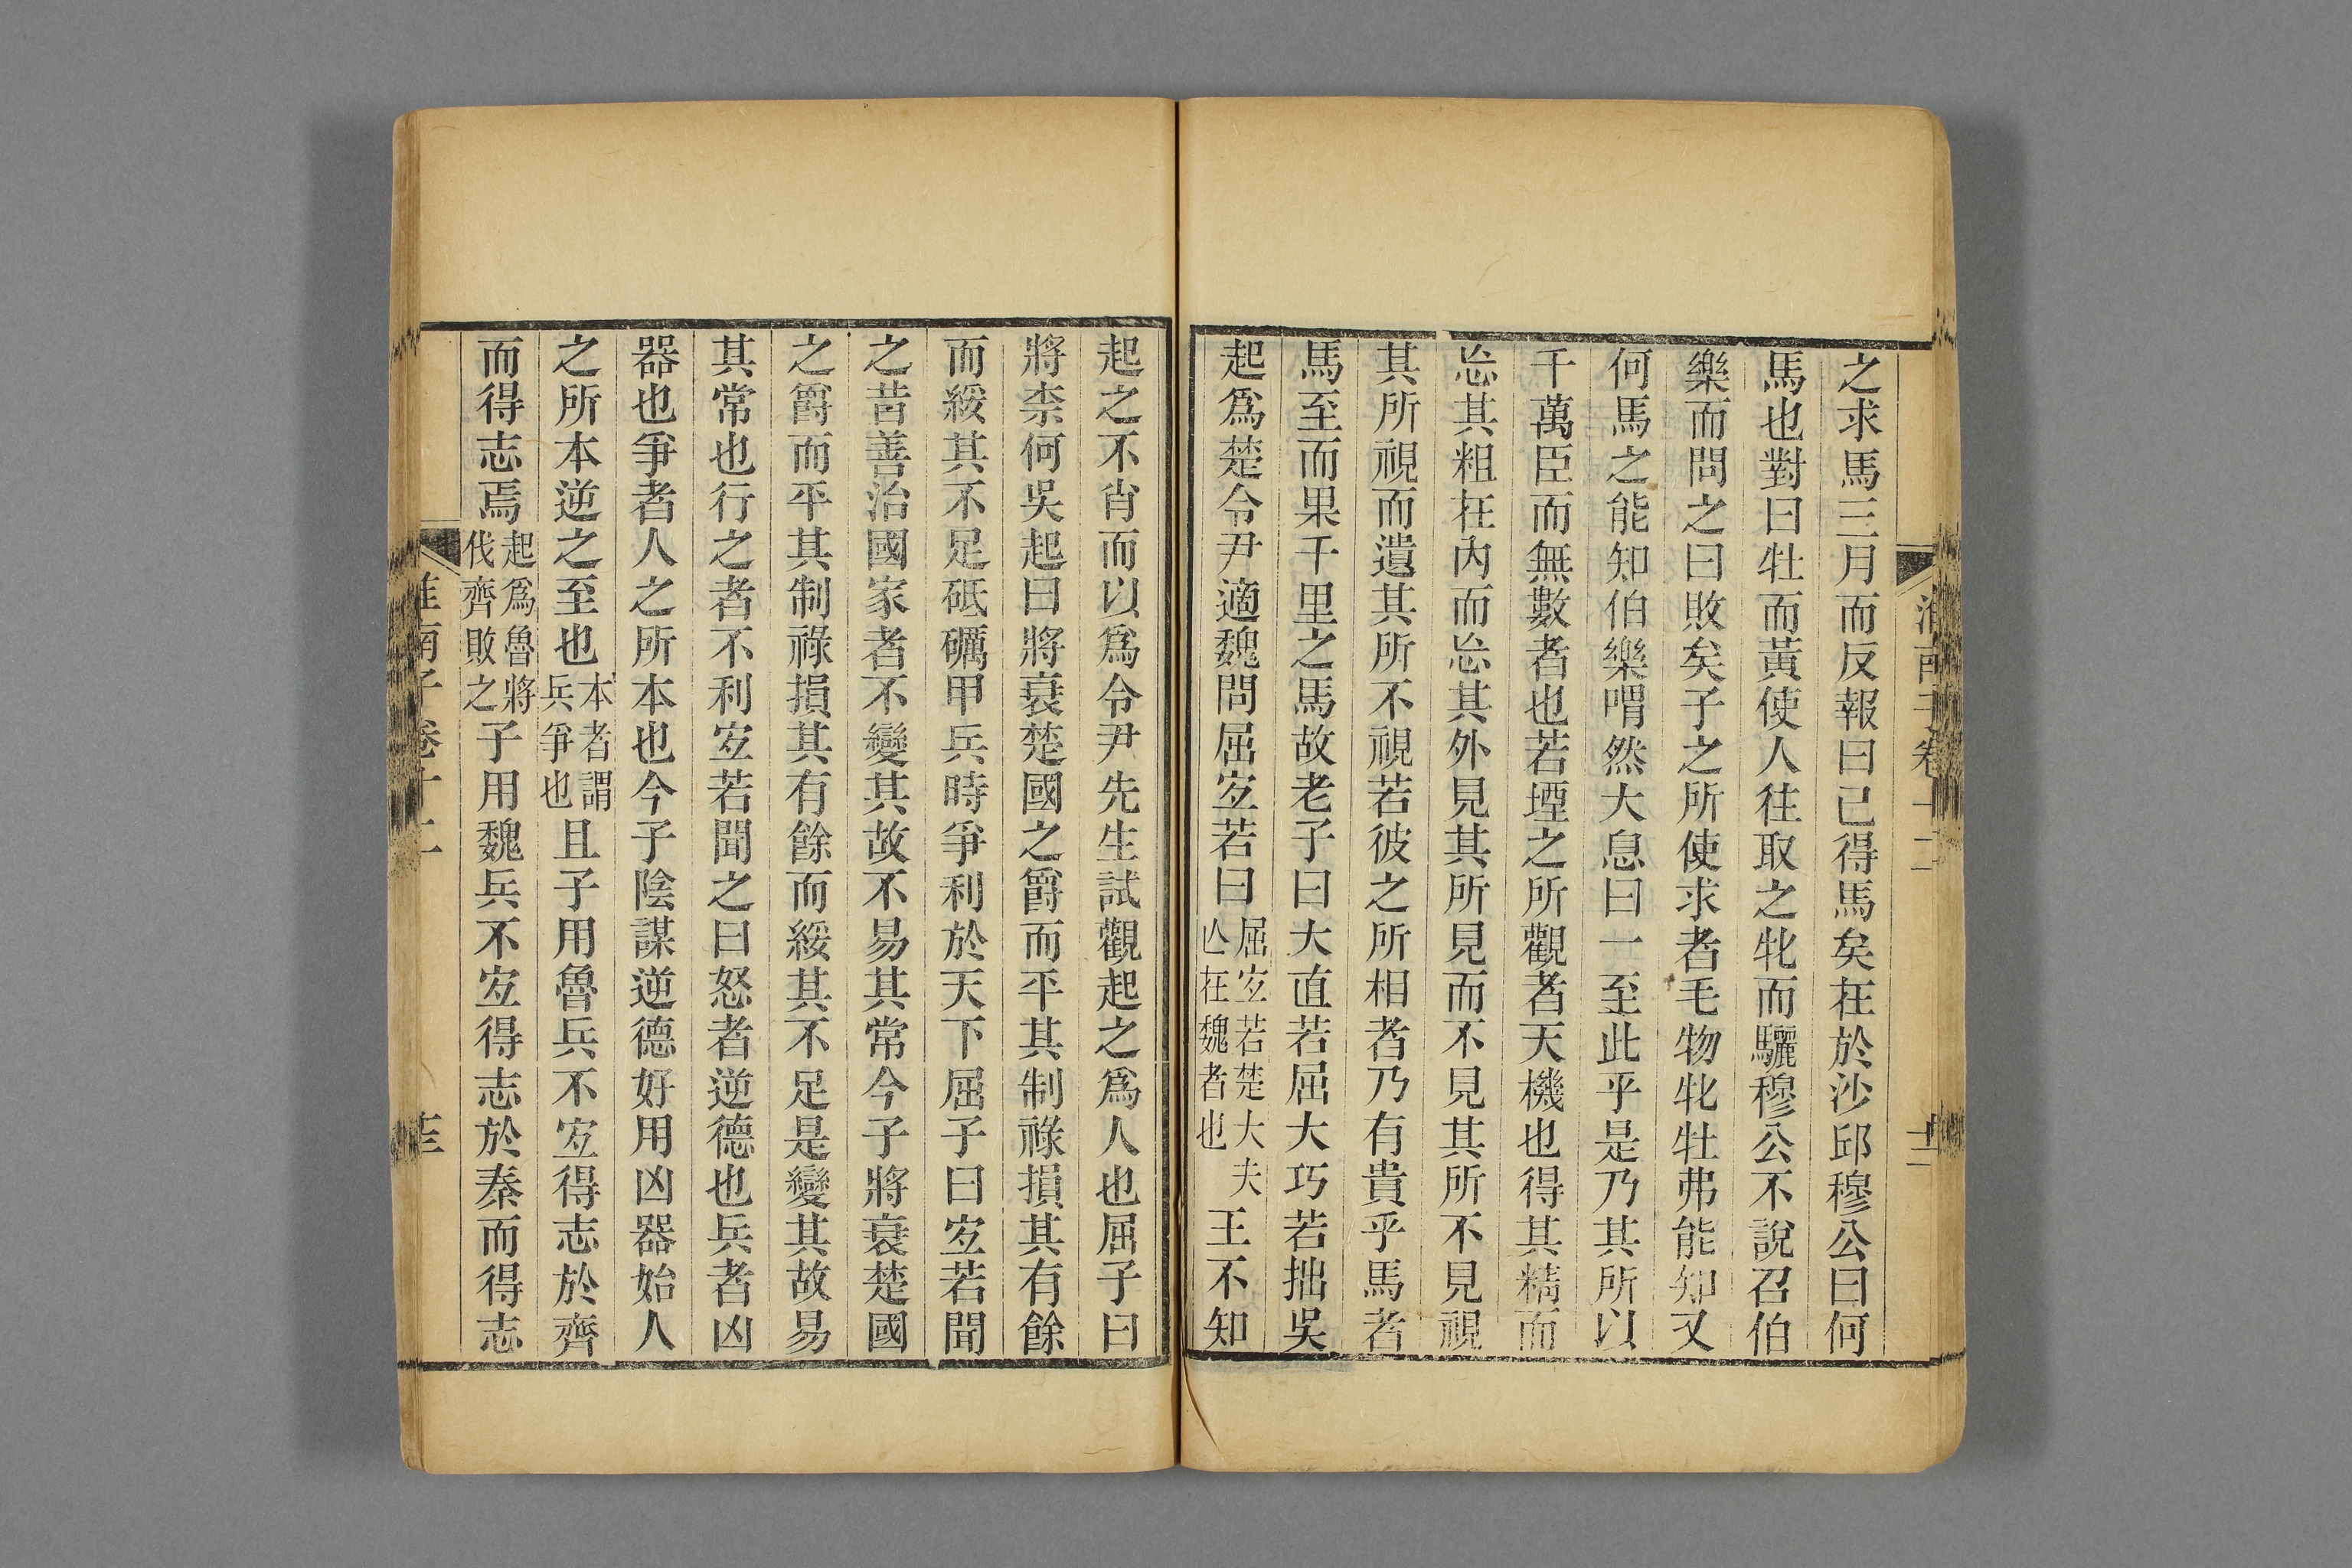 之求馬三月而反報曰已得馬矣在於沙邱穆公曰何
馬也對曰牡而黃使人往取之牝而驪穆公不說召伯
樂而問之曰敗矣子之所使求者毛物牝牡弗能知又
何馬之能知伯樂喟然大息曰一至此乎是乃其所以
千萬臣而無數者也若堙之所觀者天機也得其精而
忘其粗在內而忘其外見其所見而不見其所不見視
其所視而遺其所不視若彼之所相者乃有貴乎馬者
馬至而果千里之馬故老子曰大直若屈大巧若拙吳
起爲楚令尹適魏問屈宐若曰屈宐若楚大夫亾在魏者也王不知
起之不肖而以爲令尹先生試觀起之爲人也屈子曰
將柰何吳起曰將衰楚國之爵而平其制祿損其有餘
而綏其不足砥礪甲兵時爭利於天下屈子曰宐若聞
之昔善治國家者不變其故不易其常今子將衰楚國
之爵而平其制祿損其有餘而綏其不足是變其故易
其常也行之者不利宐若聞之曰怒者逆德也兵者凶
器也爭者人之所本也今子陰謀逆德好用凶器始人
之所本逆之至也本者謂兵爭也且子用魯兵不宐得志於齊
而得志焉起爲魯將伐齊敗之子用魏兵不宐得志於秦而得志
淮南子卷十二